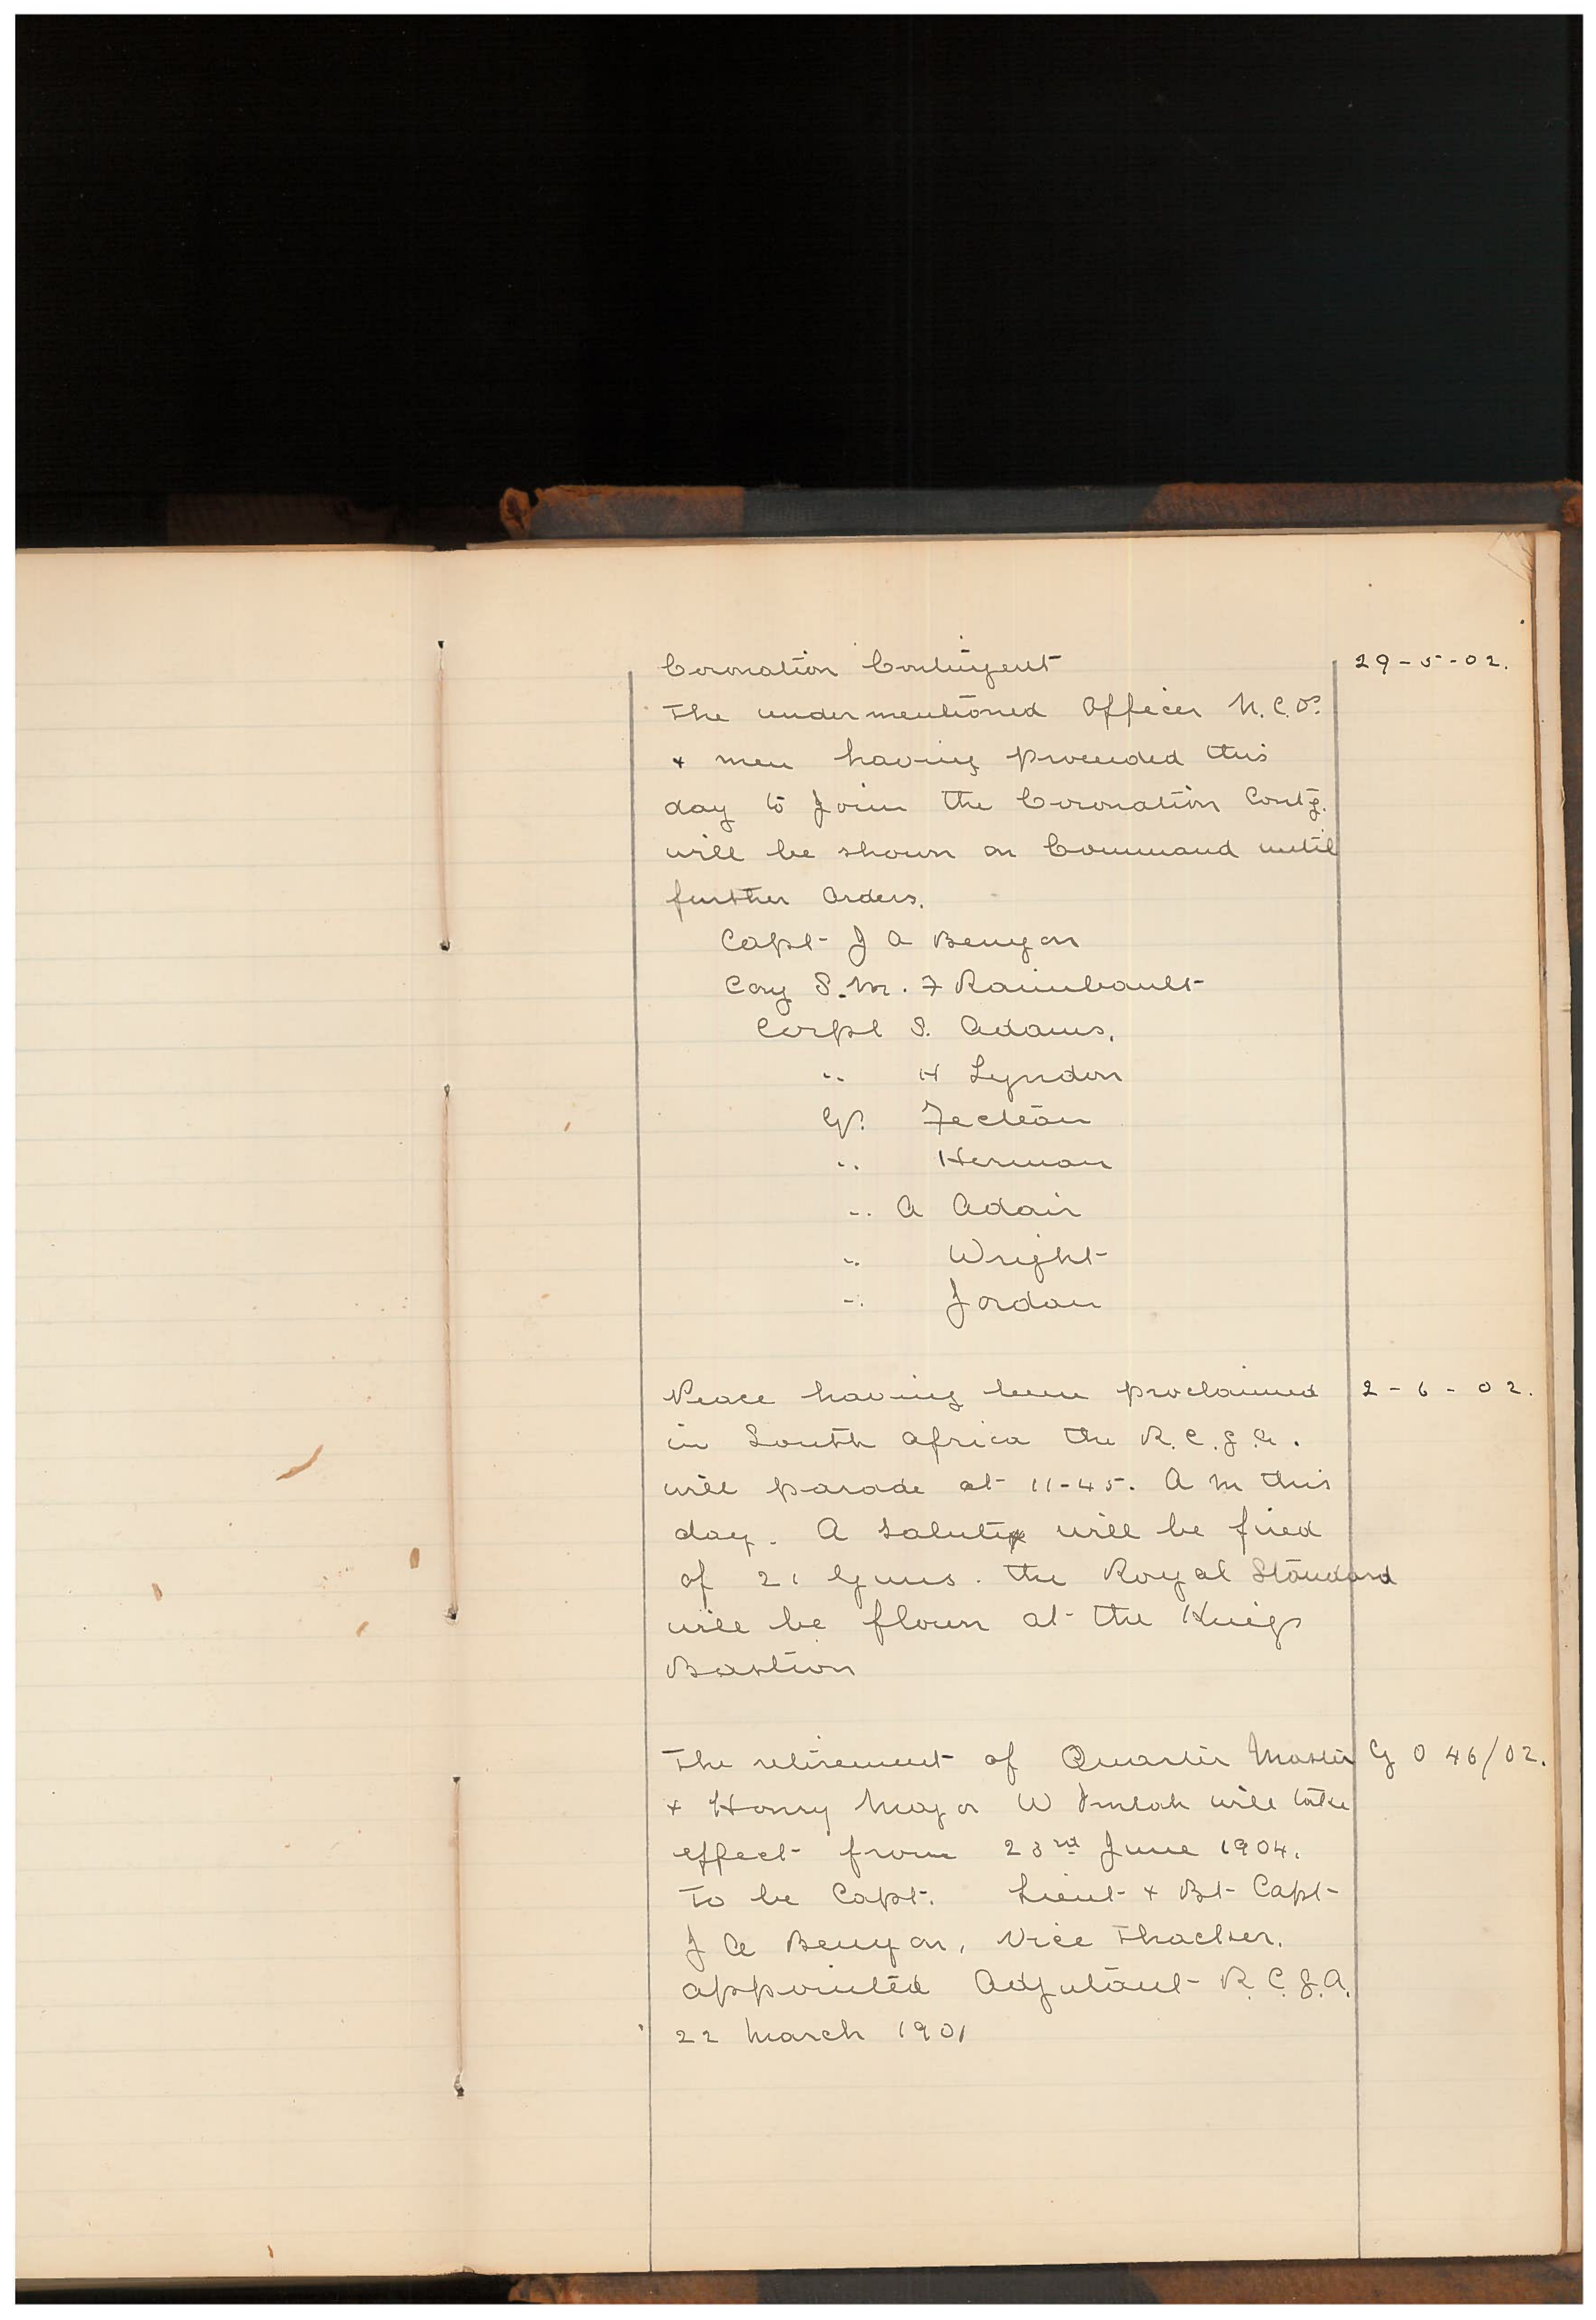 Coronation Contingent 29-5-02.
The undermentioned Officer N.C.Os.
+ men having proceeded this
day to join the Coronation Contg.
will be shown on Command until
further Orders.
Capt J A Benyon
Coy S.M. F Raimbault
Corpl S. Adams.
" H Lyndon
Gr. Fecteau
" Herman
" A Adair
" Wright
" Jordan
Peace having been proclaimed 2-6-02.
in South Africa the R.C.G.A.
will parade at 11-45. A M this
day. A salute will be fired
of 21 Guns. the Royal Standard
will be flown at the Kings
Bastion
The retirement of Quarter Master G O 46/02.
+ Honry Major W Imlah will take
effect from 23rd June 1904.
To be Capt. Lieut + Bt Capt
J A Benyon, Vice Thacker.
appointed Adjutant R.C.G.A.
22 March 1901